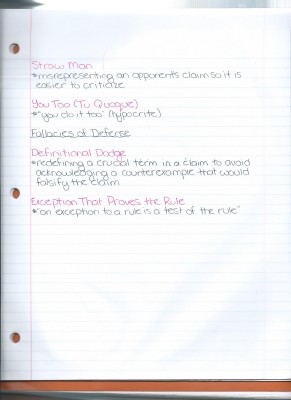 Straw Man
*misrepresenting an opponent's claim so it is
easier to criticize
You Too (Tu Quoque)
*"you do it too" (hypocrite)
Fallacies of Defense
Definitional Dodge
*redefining a crucial term in a claim to avoid
acknowledging a counterexample that would
falsify the claim
Exception That Proves the Rule
*"an exception to a rule is a test of the rule"